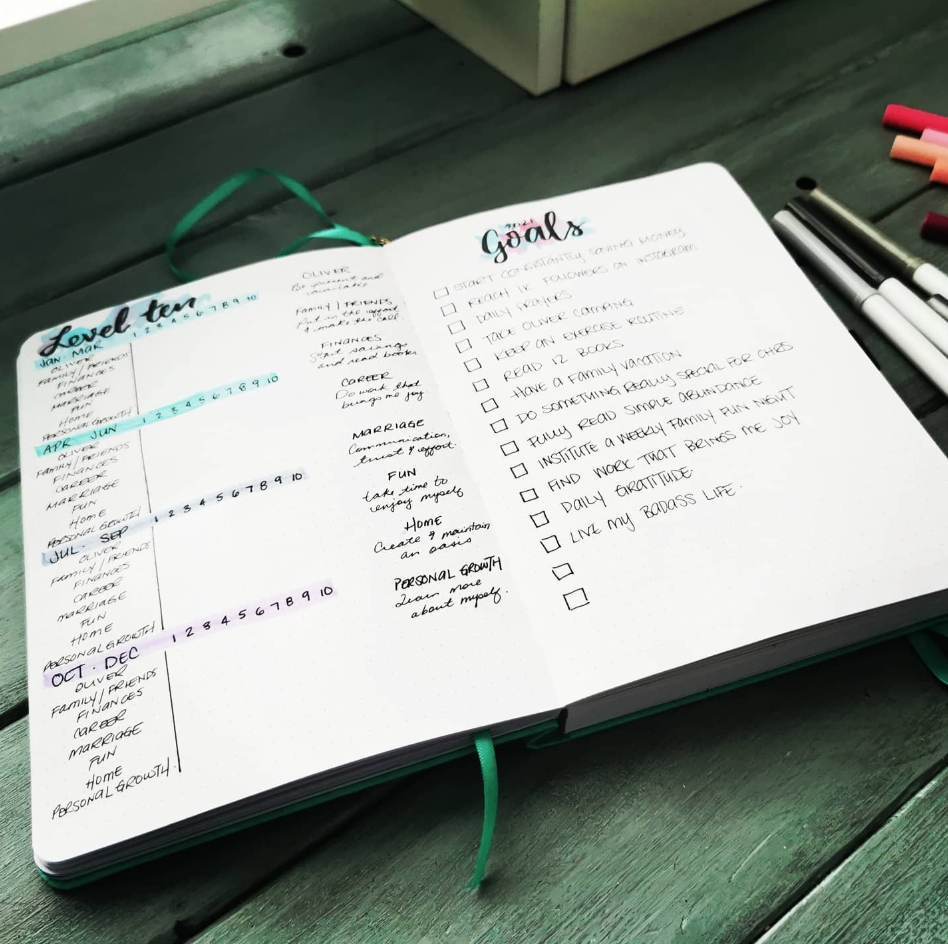 Level ten
JAN. MAR 1 2 3 4 5 6 7 8 9 10
OLIVER
FAMILY/FRIENDS
FINANCES
CAREER
MARRIAGE
FUN
HOME
PERSONAL GROWTH
APR. JUN 1 2 3 4 5 6 7 8 9 10
OLIVER
FAMILY/FRIENDS
FINANCES
CAREER
MARRIAGE
FUN
HOME
PERSONAL GROWTH
JUL. SEP 1 2 3 4 5 6 7 8 9 10
OLIVER
FAMILY/FRIENDS
FINANCES
CAREER
MARRIAGE
FUN
HOME
PERSONAL GROWTH
OCT. DEC 1 2 3 4 5 6 7 8 9 10
OLIVER
FAMILY/FRIENDS
FINANCES
CAREER
MARRIAGE
FUN
HOME
PERSONAL GROWTH.
OLIVER
Be present and
FAMILY/FRIENDS
Put in the effort
& make the call
FINANCES
Start savings
and read books
CAREER
Do work that
brings me joy
MARRIAGE
Communication,
trust & effort.
FUN
take time to
enjoy myself
HOME
Create & maintain
an oasis
PERSONAL GROWTH
Learn more
about myself.
2021
Goals
START CONSISTANTLY SAVING MONEY
REACH 1K FOLLOWERS ON INSTAGRAM
DAILY PRAYERS
TAKE OLIVER CAMPING
KEEP AN EXERCISE ROUTINE
READ 12 BOOKS
HAVE A FAMILY VACATION
DO SOMETHING REALLY SPECIAL FOR CHRIS
FULLY READ SIMPLE ABUNDANCE
INSTITUTE A WEEKLY FAMILY FUN NIGHT
FIND WORK THAT BRINGS ME JOY
DAILY GRATITUDE.
LIVE MY BADASS LIFE.